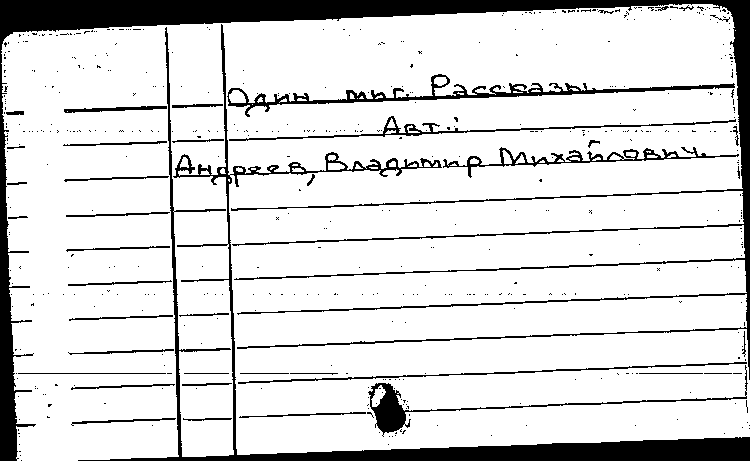 Один миг. Рассказы.
Авт.:
Андреев, Владимир Михайлович.